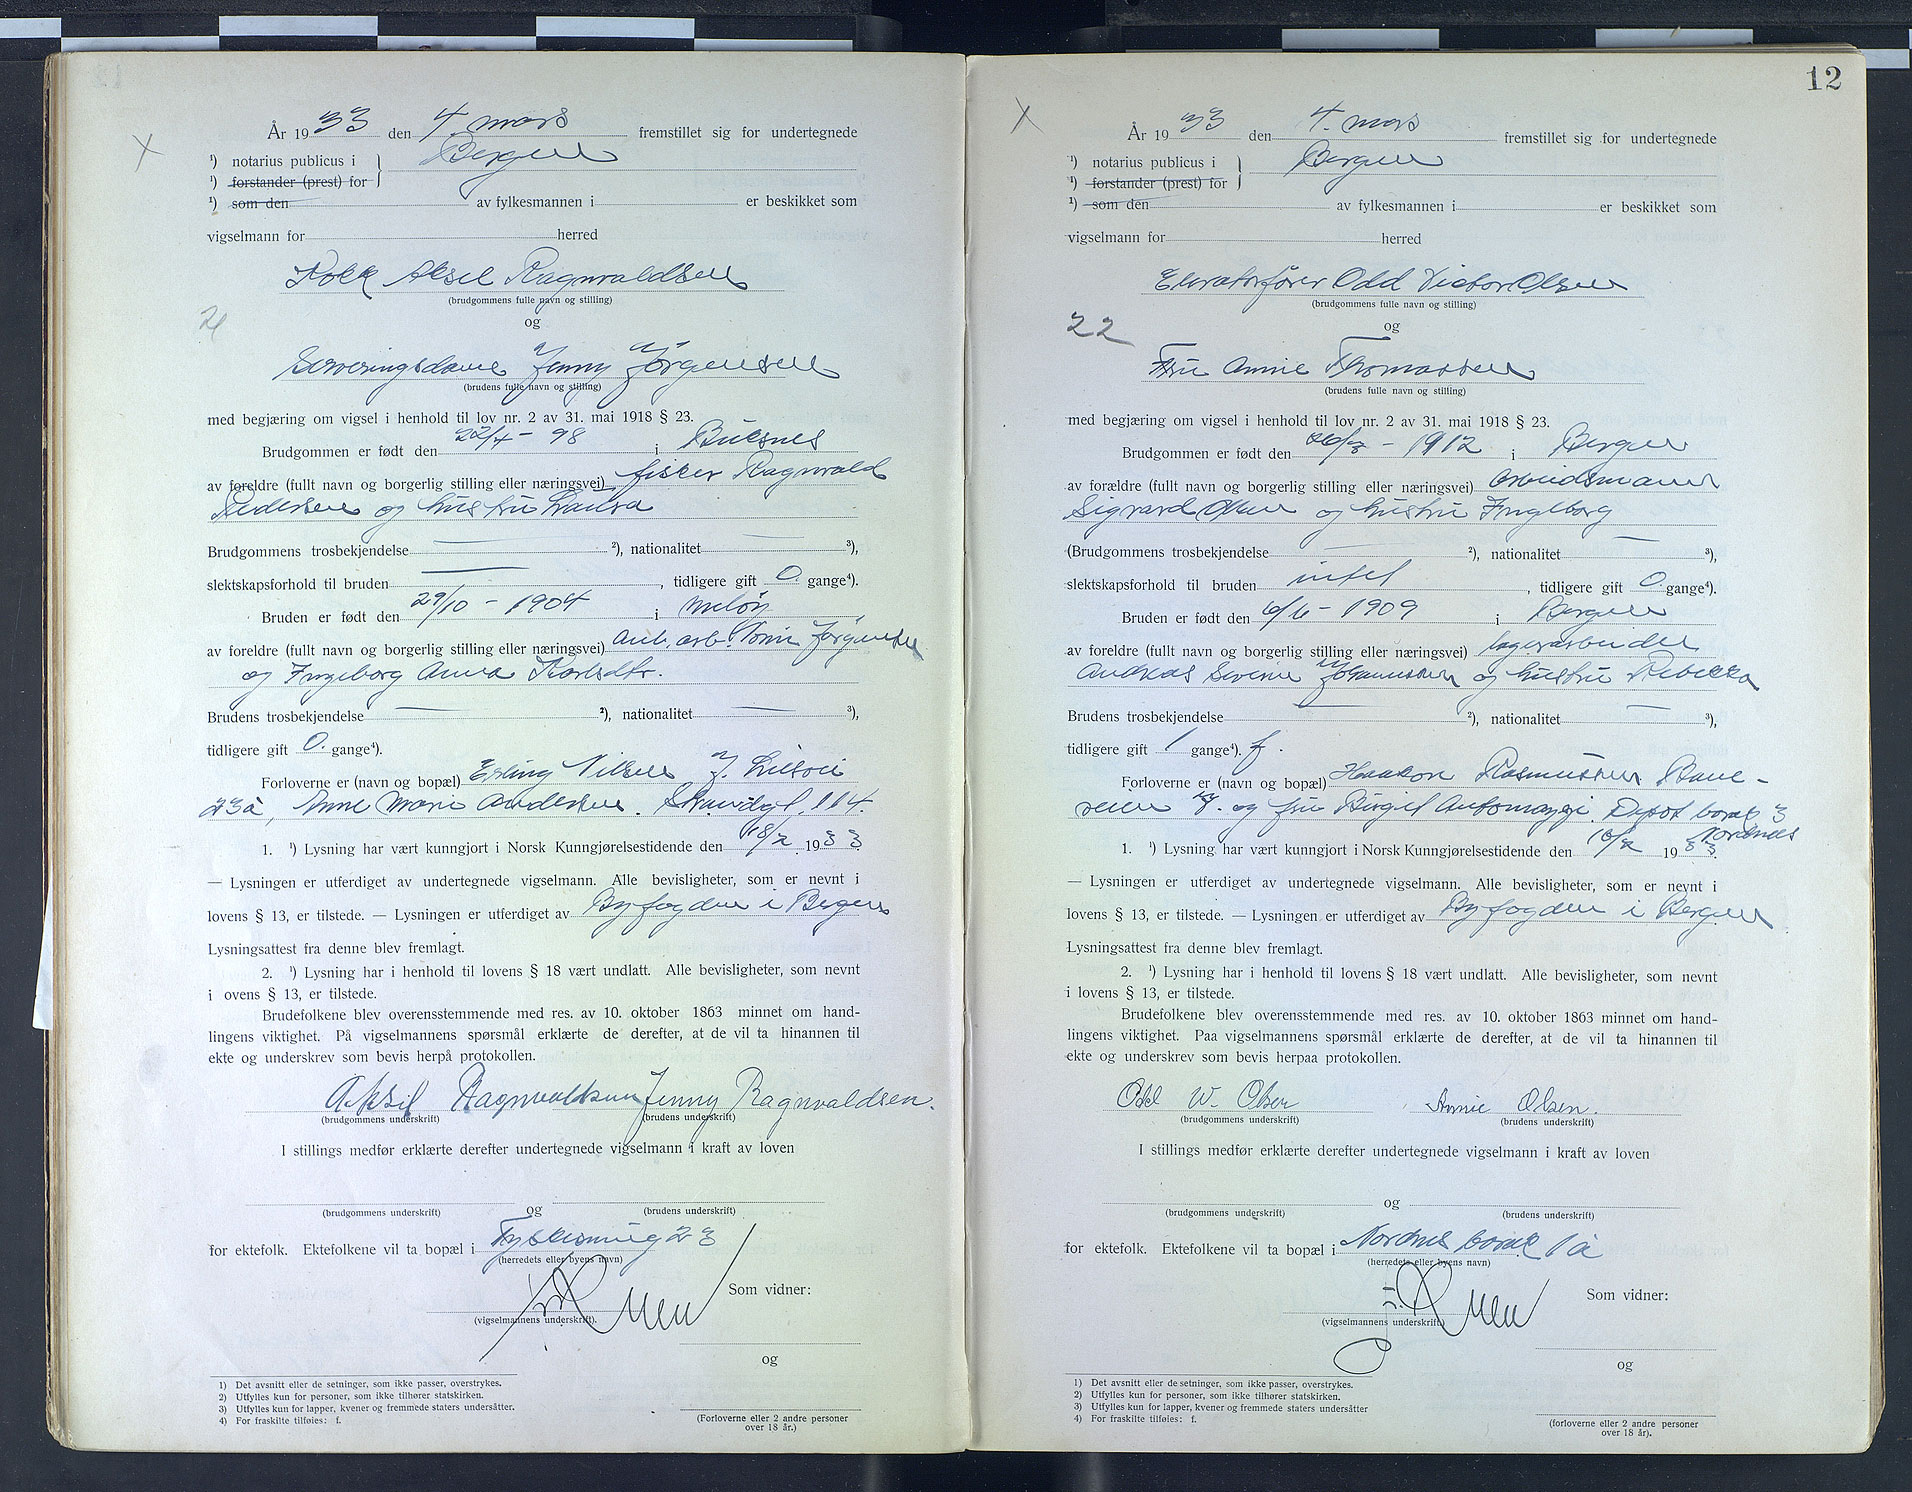 År 1933 den 4. mars fremstillet sig for undertegnede
¹) notarius publicus i Bergen
¹) forstander (prest) for
¹) som den av fylkesmannen i er beskikket som
vigselmann for herred
Kokk Aksel Ragnvaldsen
(brudgommens fulle navn og stilling)
21
og
Serveringsdame Jenny Jørgensen
(brudens fulle navn og stilling)
med begjæring om vigsel i henhold til lov nr. 2 av 31. mai 1918 § 23.
Brudgommen er født den 22/4 - 98 i Buksnes
av foreldre (fullt navn og borgerlig stilling eller næringsvei) fisker Ragnvald
Pedersen og hustru Laura
Brudgommens trosbekjendelse — ²), nationalitet — ³),
slektskapsforhold til bruden — , tidligere gift 0. gange⁴).
Bruden er født den 29/10 - 1904 i Meløy
av foreldre (fullt navn og borgerlig stilling eller næringsvei) anl. arb. Jørgensen
og Ingeborg Anna Karlsdtr.
Brudens trosbekjendelse — ²), nationalitet — ³),
tidligere gift 0. gange⁴).
Forloverne er (navn og bopæl) Erling Nilsen
23a, Anne Marie Andersen. Strandgt. 114.
1. ¹) Lysning har vært kunngjort i Norsk Kunngjørelsestidende den 18/2 1933
— Lysningen er utferdiget av undertegnede vigselmann. Alle bevisligheter, som er nevnt i
lovens § 13, er tilstede. — Lysningen er utferdiget av Byfogden i Bergen
Lysningsattest fra denne blev fremlagt.
2. ¹) Lysning har i henhold til lovens § 18 vært undlatt. Alle bevisligheter, som nevnt
i ovens § 13, er tilstede.
Brudefolkene blev overensstemmende med res. av 10. oktober 1863 minnet om hand-
lingens viktighet. På vigselmannens spørsmål erklærte de derefter, at de vil ta hinannen til
ekte og underskrev som bevis herpå protokollen.
Aksel Ragnvaldsen Jenny Ragnvaldsen.
(brudgommens underskrift) (brudens underskrift)
I stillings medfør erklærte derefter undertegnede vigselmann i kraft av loven
og
(brudgommens underskrift) (brudens underskrift)
for ektefolk. Ektefolkene vil ta bopæl i 23
(herredets eller byens navn)
Som vidner:
(vigselmannens underskrift).
og
1) Det avsnitt eller de setninger, som ikke passer, overstrykes.
2) Utfylles kun for personer, som ikke tilhører statskirken.
3) Utfylles kun for lapper, kvener og fremmede staters undersåtter.
4) For fraskilte tilføies: f.
(Forloverne eller 2 andre personer
over 18 år.)
12
År 1933 den 4. mars fremstillet sig for undertegnede
¹) notarius publicus i Bergen
¹) forstander (prest) for
¹) som den av fylkesmannen i er beskikket som
vigselmann for herred
Elevatorfører Odd Victor Olsen
(brudgommens fulle navn og stilling)
22
og
Fru Annie Thomassen
(brudens fulle navn og stilling)
med begjæring om vigsel i henhold til lov nr. 2 av 31. mai 1918 § 23.
Brudgommen er født den - 1912 i Bergen
av forældre (fullt navn og borgerlig stilling eller næringsvei) arbeidsmann
Sigvard Olsen og hustru Ingeborg
(Brudgommens trosbekjendelse — ²), nationalitet — ³),
slektskapsforhold til bruden intet , tidligere gift 0. gange⁴).
Bruden er født den 6/6 - 1909 i Bergen
av foreldre (fullt navn og borgerlig stilling eller næringsvei) lagerarbeider
Andreas Severin Johannessen og hustru Rebekka
Brudens trosbekjendelse — ²), nationalitet — ³),
tidligere gift 1 gange⁴). f.
Forloverne er (navn og bopæl) Haakon Rasmussen
veien og fru Birgit Depot borak 3
Nordnes
1. ¹) Lysning har vært kunngjort i Norsk Kunngjørelsestidende den 18/2 1933.
— Lysningen er utferdiget av undertegnede vigselmann. Alle bevisligheter, som er nevnt i
lovens § 13, er tilstede. — Lysningen er utferdiget av Byfogden i Bergen
Lysningsattest fra denne blev fremlagt.
2. ¹) Lysning har i henhold til lovens § 18 vært undlatt. Alle bevisligheter, som nevnt
i lovens § 13, er tilstede.
Brudefolkene blev overensstemmende med res. av 10. oktober 1863 minnet om hand-
lingens viktighet. Paa vigselmannens spørsmål erklærte de derefter, at de vil ta hinannen til
ekte og underskrev som bevis herpaa protokollen.
Odd W. Olsen Annie Olsen.
(brudgommens underskrift) (brudens underskrift)
I stillings medfør erklærte derefter undertegnede vigselmann i kraft av loven
og
(brudgommens underskrift) (brudens underskrift)
for ektefolk. Ektefolkene vil ta bopæl i Nordnes borak 1a
(herredets eller byens navn)
Som vidner:
(vigselmannens underskrift)
og
1) Det avsnitt eller de setninger, som ikke passer, overstrykes.
2) Utfylles kun for personer, som ikke tilhører statskirken.
3) Utfylles kun for lapper, kvener og fremmede staters undersåtter
4) For fraskilte tilføies: f.
(forloverne eller 2 andre personer
over 18 år).